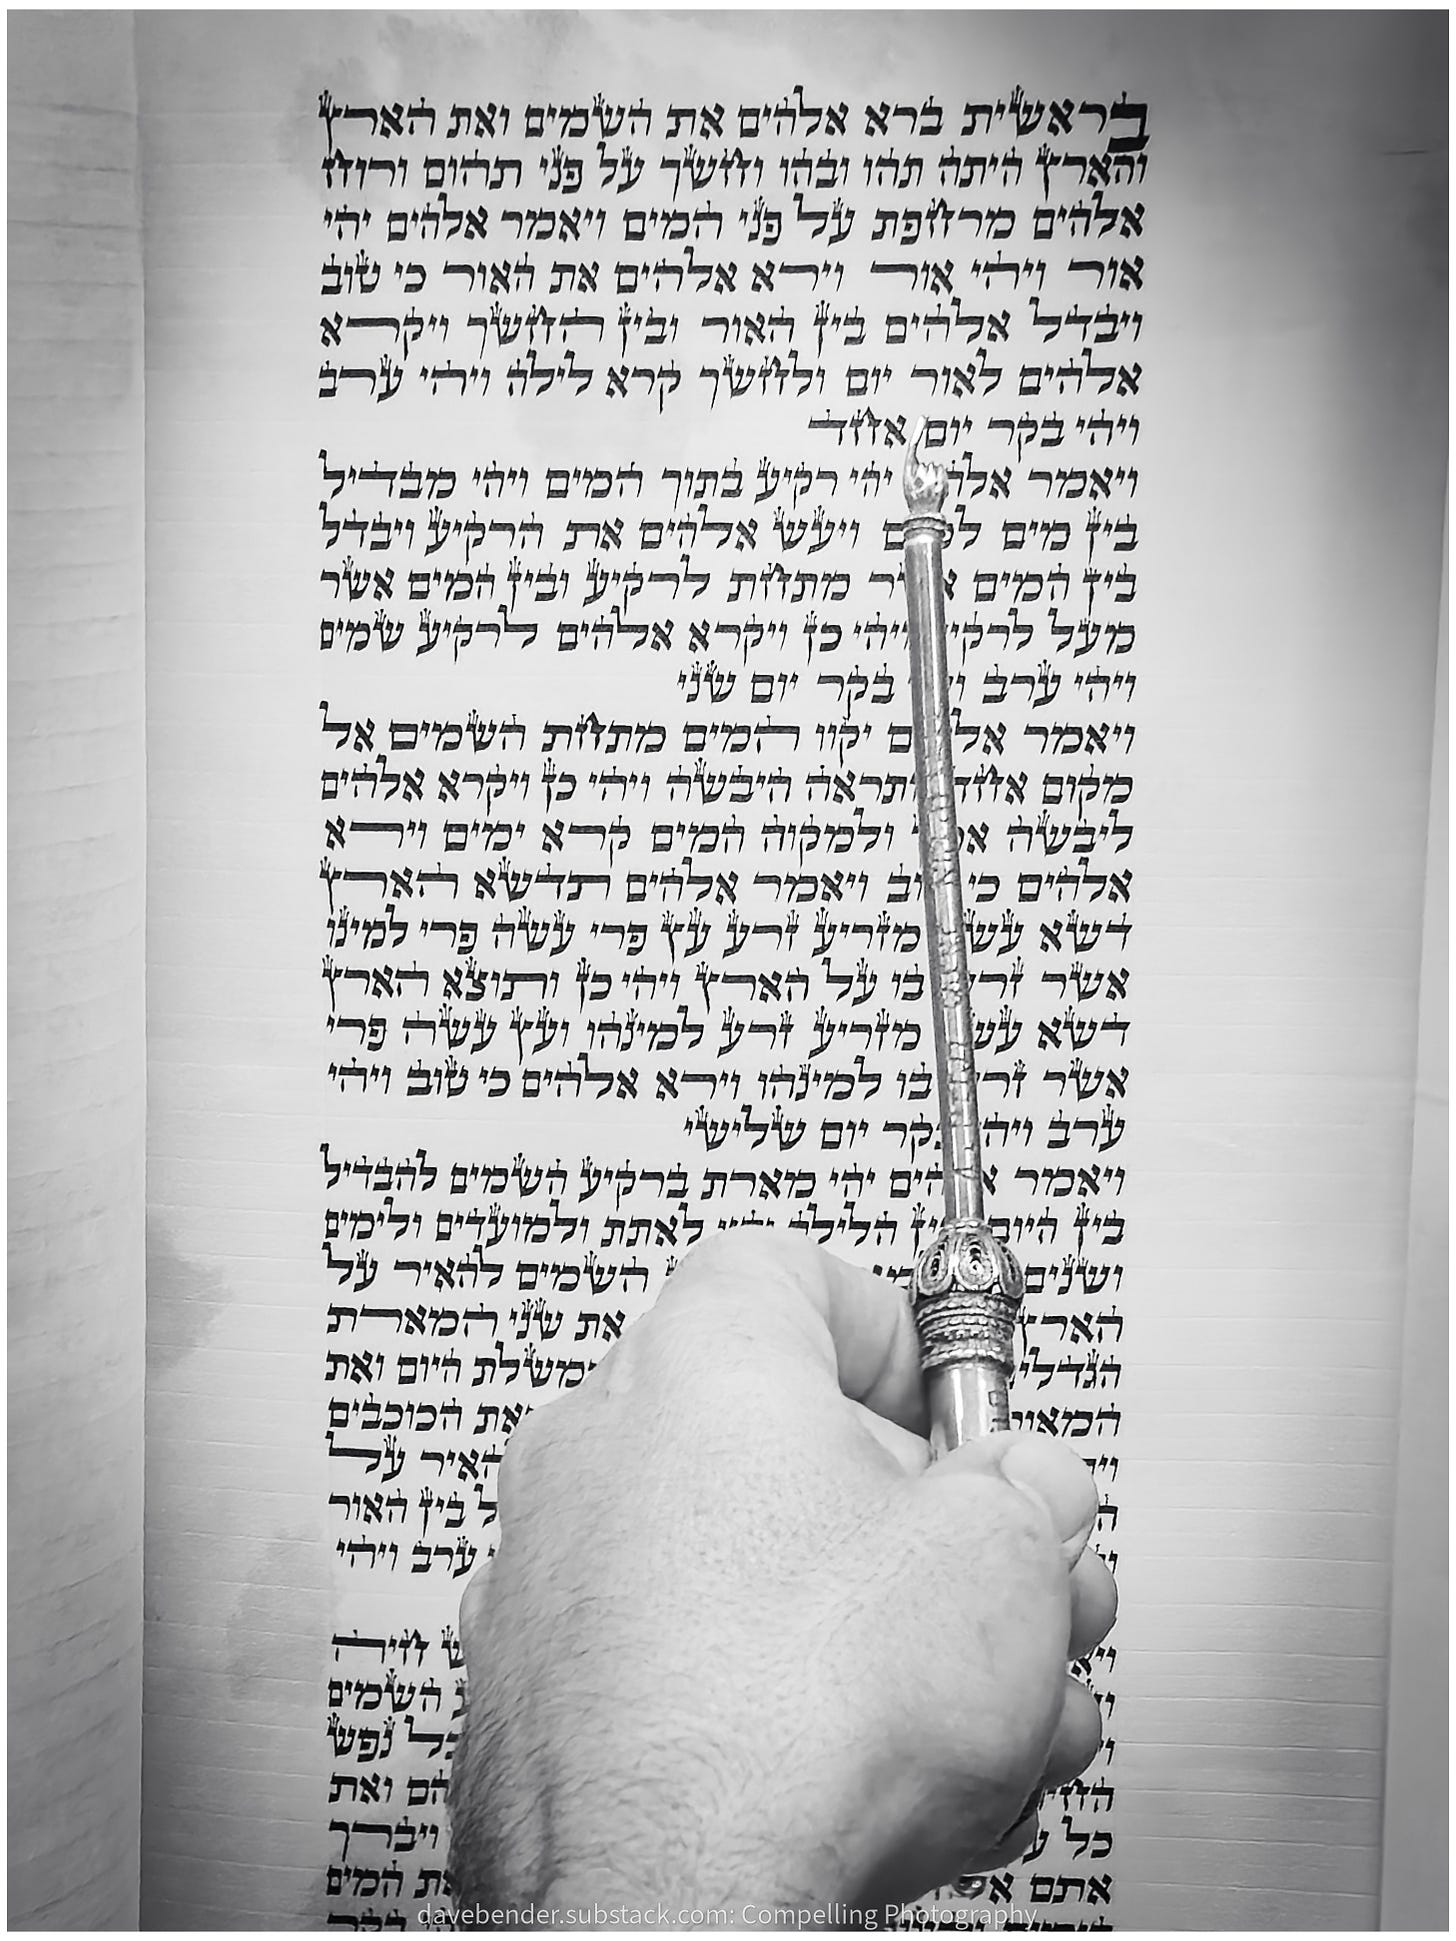 בראשית ברא אלהים את השמים ואת הארץ
והארץ היתה תהו ובהו וחשך על פני תהום ורוח
אלהים מרחפת על פני המים ויאמר אלהים יהי
אור ויהי אור וירא אלהים את האור כי טוב
ויבדל אלהים בין האור ובין החשך ויקרא
אלהים לאור יום ולחשך קרא לילה ויהי ערב
ויהי בקר יום אחד
ויאמר יהי רקיע בתוך המים ויהי מבדיל
בין מים ויעש אלהים את הרקיע ויבדל
בין המים מתחת לרקיע ובין המים אשר
מעל ויהי כן ויקרא אלהים לרקיע שמים
ויהי ערב בקר יום שני
ויאמר יקוו המים מתחת השמים אל
מקום אחד ותראה היבשה ויהי כן ויקרא אלהים
ליבשה ולמקוה המים קרא ימים וירא
אלהים כי ויאמר אלהים תדשא הארץ
דשא מזריע זרע עץ פרי עשה פרי למינו
אשר בו על הארץ ויהי כן ותוצא הארץ
דשא מזריע זרע למינהו ועץ עשה פרי
אשר בו למינהו וירא אלהים כי טוב ויהי
ערב יום שלישי
ויאמר יהי מארת ברקיע השמים להבדיל
בין היום הלילה לאתת ולמועדים ולימים
ושנים השמים להאיר על
הארץ את שני המארת
היום ואת
הכוכבים
להאיר על
בין האור
ערב ויהי
חיה
השמים
כל נפש
ואת
כל ויברך
אתם המים
davebender.substack.com: Compelling Photography